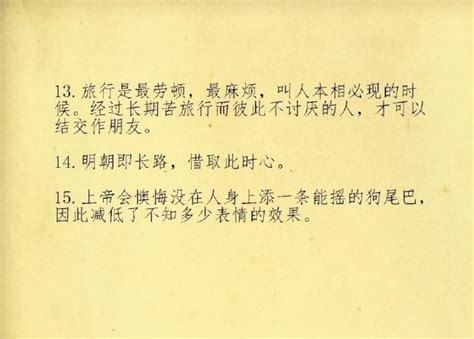 13. 旅行是最劳顿，最麻烦，叫人本相必现的时
候。经过长期苦旅行而彼此不讨厌的人，才可以
结交作朋友。
14. 明朝即长路，惜取此时心。
15. 上帝会懊悔没在人身上添一条能摇的狗尾巴，
因此减低了不知多少表情的效果。